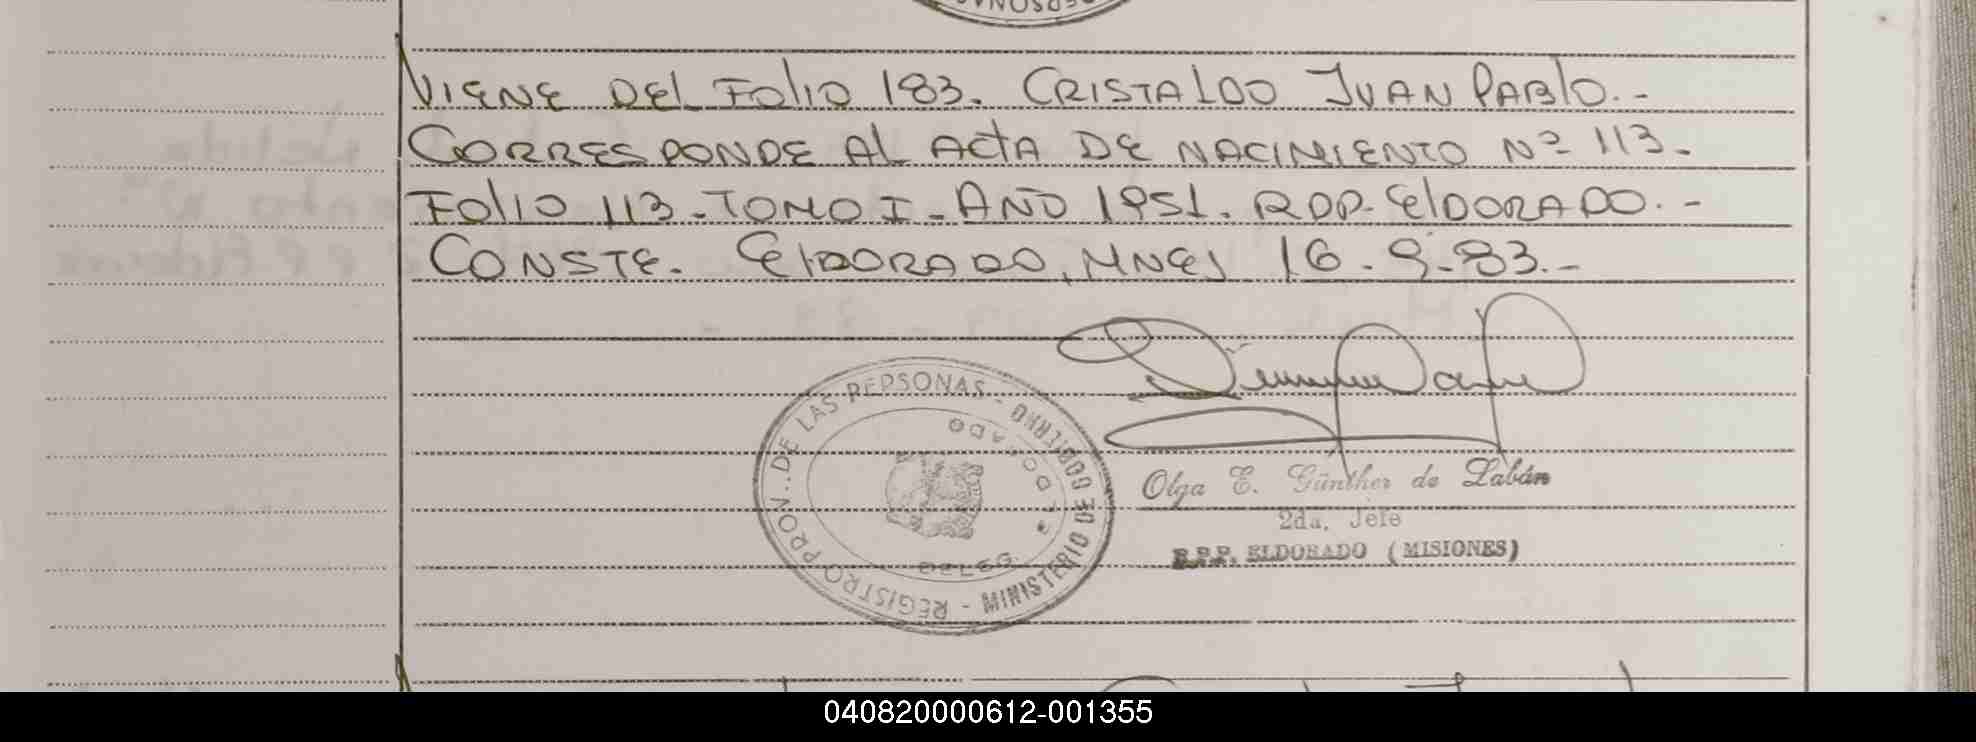 VIENE DEL FOLIO 183. CRISTALDO JUAN PABLO.-
CORRESPONDE AL ACTA DE NACIMIENTO Nº 113.
FOLIO 113-TOMO I-AÑO 1951. RPP-ELDORADO.-
CONSTE. ELDORADO, MNES 16-9-83.-
REGISTRO PROV. DE LAS PERSONAS - MINISTERIO DE GOBIERNO
DELEG. ELDORADO
Olga E. Günther de Labán
2da. Jefe
R.P.P. ELDORADO (MISIONES)
040820000612-001355